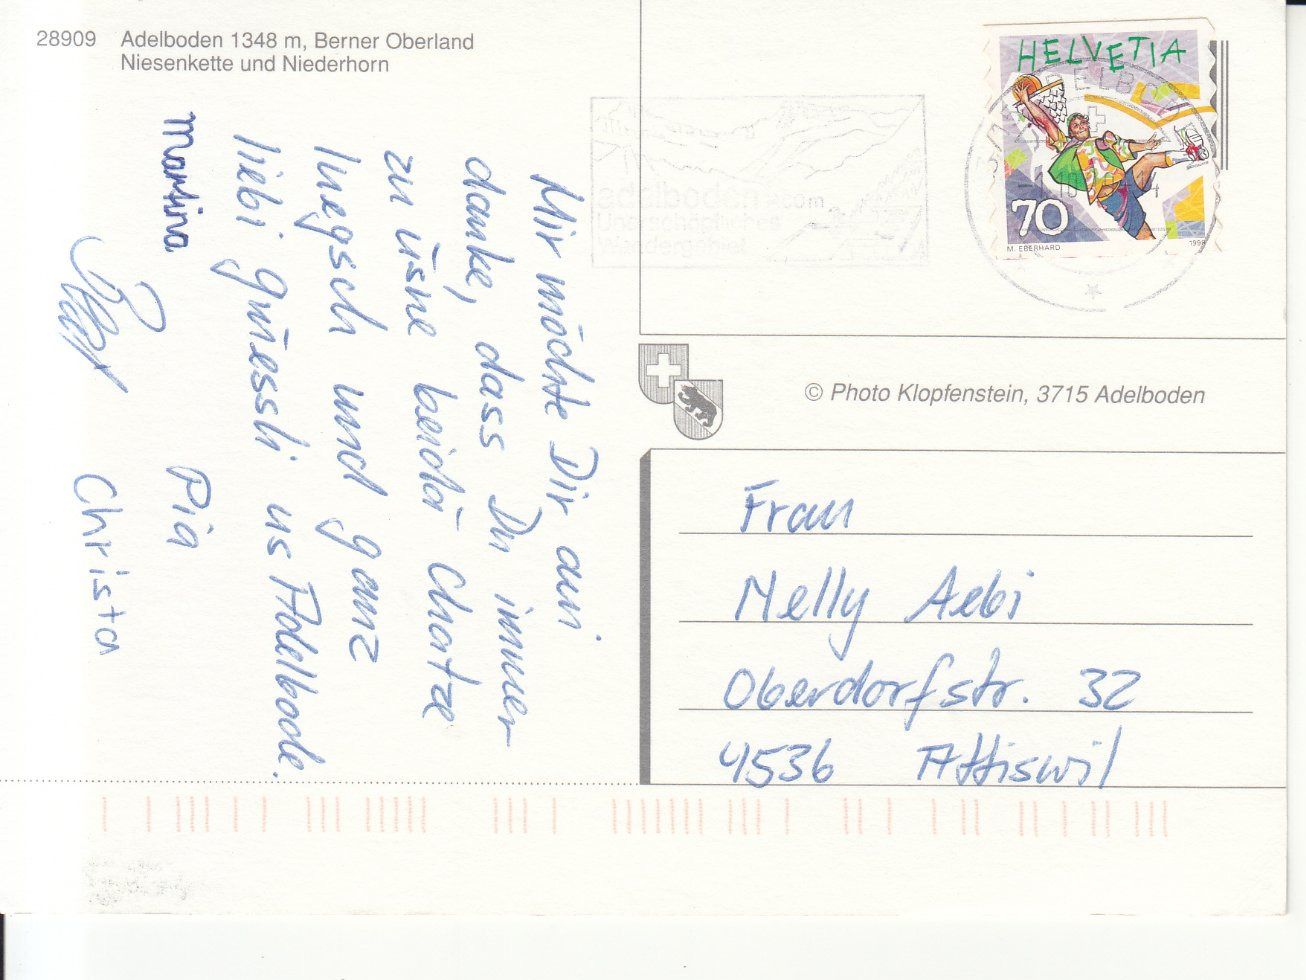 28909 Adelboden 1348 m, Berner Oberland
Niesenkette und Niederhorn
HELVETIA
70
M. EBERHARD 1998
© Photo Klopfenstein, 3715 Adelboden
Mir möchte Dir aui
danke, dass Du immer
zu üsne beidä Chatze
luegsch und ganz
liebi grüessli us Adelbode.
Martina Pia
Christa
Frau
Nelly Aebi
Oberdorfstr. 32
4536 Attiswil